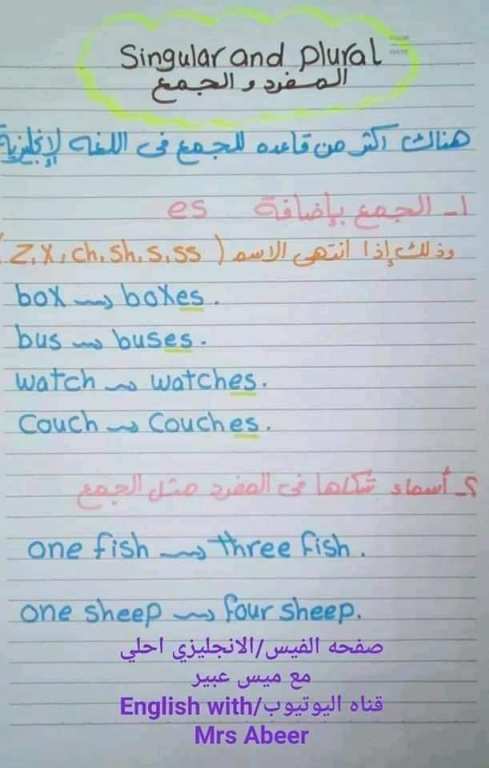 Singular and plural
المفرد و الجمع
هناك اكثر من قاعده للجمع فى اللغه الإنجليزية
١- الجمع بإضافة es
وذلك إذا انتهى الاسم ( Z, X, Ch, Sh, S, SS )
box → boxes.
bus → buses.
watch → watches.
Couch → Couches.
٢- أسماء شكلها فى المفرد مثل الجمع
one fish → three fish.
one sheep → four sheep.
صفحه الفيس/الانجليزي احلي
مع ميس عبير
قناه اليوتيوب/English with
Mrs Abeer